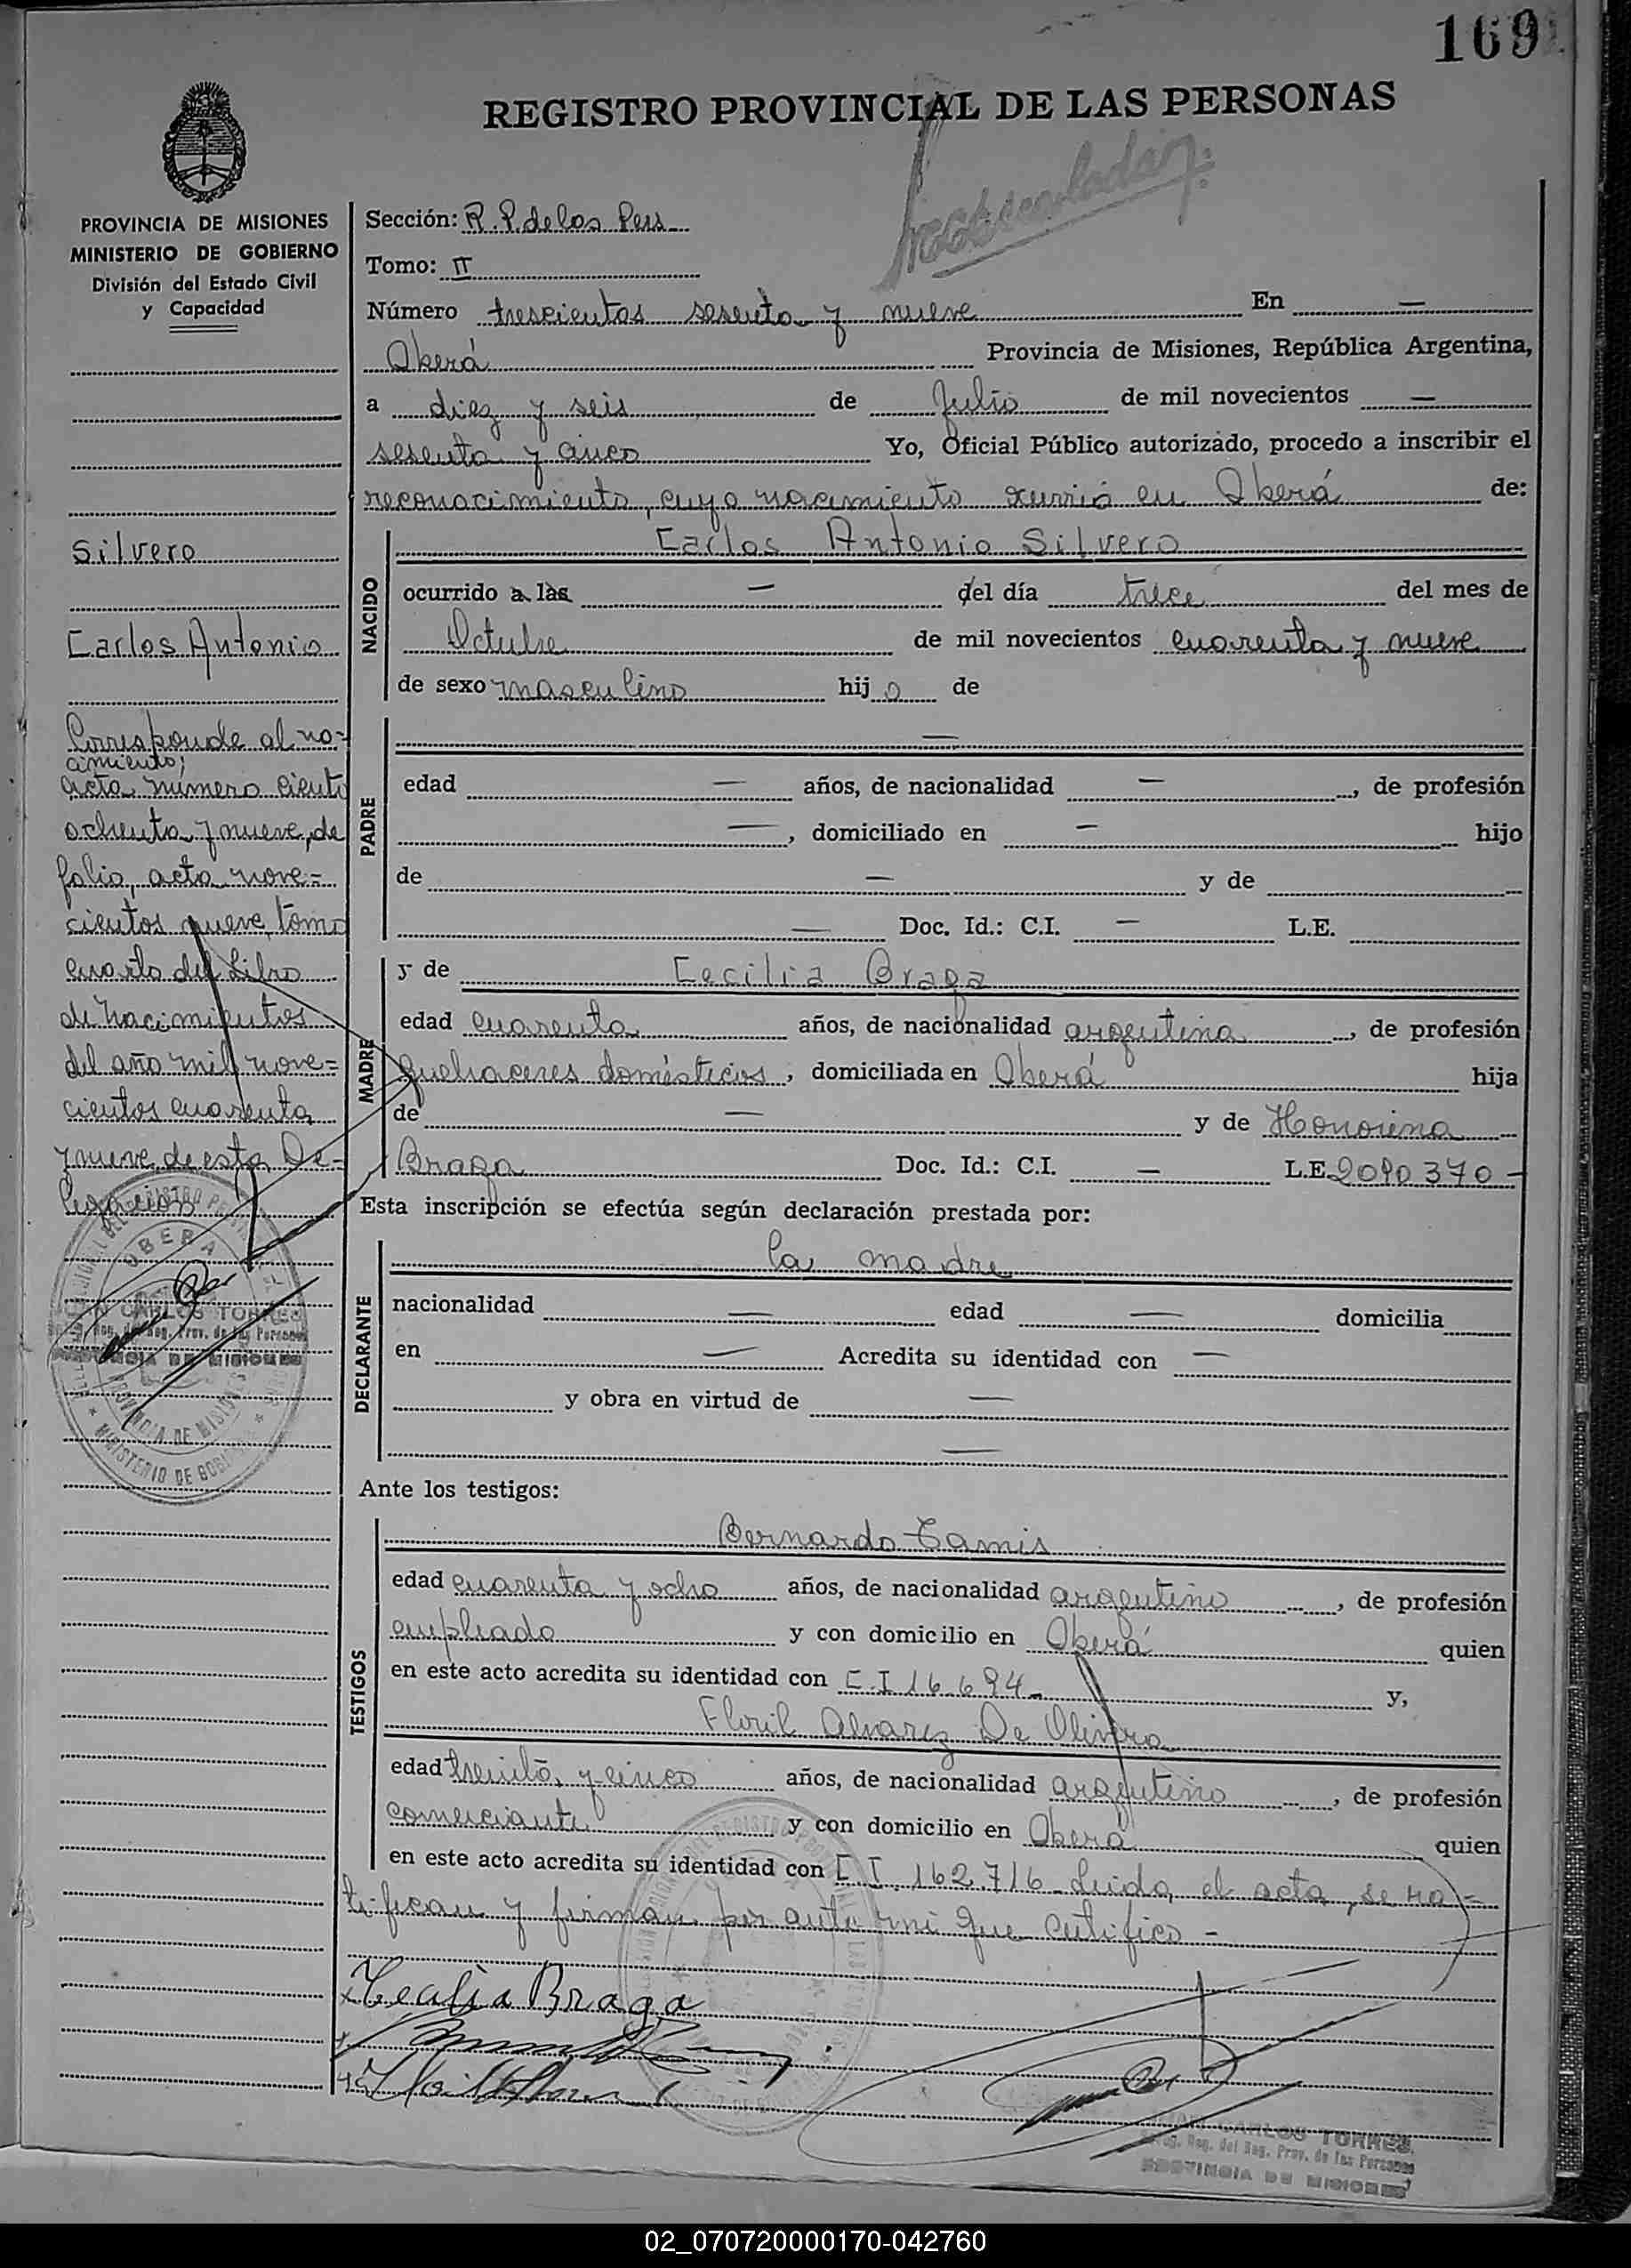 169
REGISTRO PROVINCIAL DE LAS PERSONAS
PROVINCIA DE MISIONES
MINISTERIO DE GOBIERNO
División del Estado Civil
y Capacidad
Silvero
Carlos Antonio
Corresponde al na=
cimiento;
acta número ciento
ochenta y nueve, de
folio, acta nove=
cientos nueve, tomo
cuarto del Libro
de Nacimientos
del año mil nove=
cientos cuarenta
y nueve, de esta De=
legación
OBERA
CARLOS TORRES
Reg. del Reg. Prov. de las Personas
PROVINCIA DE MISIONES
PROVINCIA DE MISIONES
MINISTERIO DE GOBI
Sección: R. P. de las Pers
Tomo: II
Número trescientos sesenta y nueve En —
Oberá Provincia de Misiones, República Argentina,
a diez y seis de Julio de mil novecientos —
sesenta y cinco Yo, Oficial Público autorizado, procedo a inscribir el
reconocimiento, cuyo nacimiento ocurrió en Oberá de:
NACIDO
Carlos Antonio Silvero
ocurrido a las — del día trece del mes de
Octubre de mil novecientos cuarenta y nueve
de sexo masculino hij o de
PADRE
—
edad — años, de nacionalidad —, de profesión
—, domiciliado en — hijo
de — y de
— Doc. Id.: C.I. — L.E.
MADRE
y de Cecilia Braga
edad cuarenta años, de nacionalidad argentina, de profesión
quehaceres domésticos, domiciliada en Oberá hija
de — y de Honorina
Braga Doc. Id.: C.I. — L.E. 2090370 -
Esta inscripción se efectúa según declaración prestada por:
DECLARANTE
la madre
nacionalidad — edad — domicilia
en — Acredita su identidad con —
y obra en virtud de —
—
Ante los testigos:
TESTIGOS
Bernardo Camis
edad cuarenta y ocho años, de nacionalidad argentino, de profesión
empleado y con domicilio en Oberá quien
en este acto acredita su identidad con C.I 16.694- y,
Floril Alvarez De Olivera
edad treinta y cinco años, de nacionalidad argentino, de profesión
comerciante y con domicilio en Oberá quien
en este acto acredita su identidad con C.I. 162.716- Leida el acta, se ra=
tifican y firman por ante mi que certifico -
Cecilia Braga
CARLOS TORRES
Reg. del Reg. Prov. de las Personas
PROVINCIA DE MISIONES
02_070720000170-042760